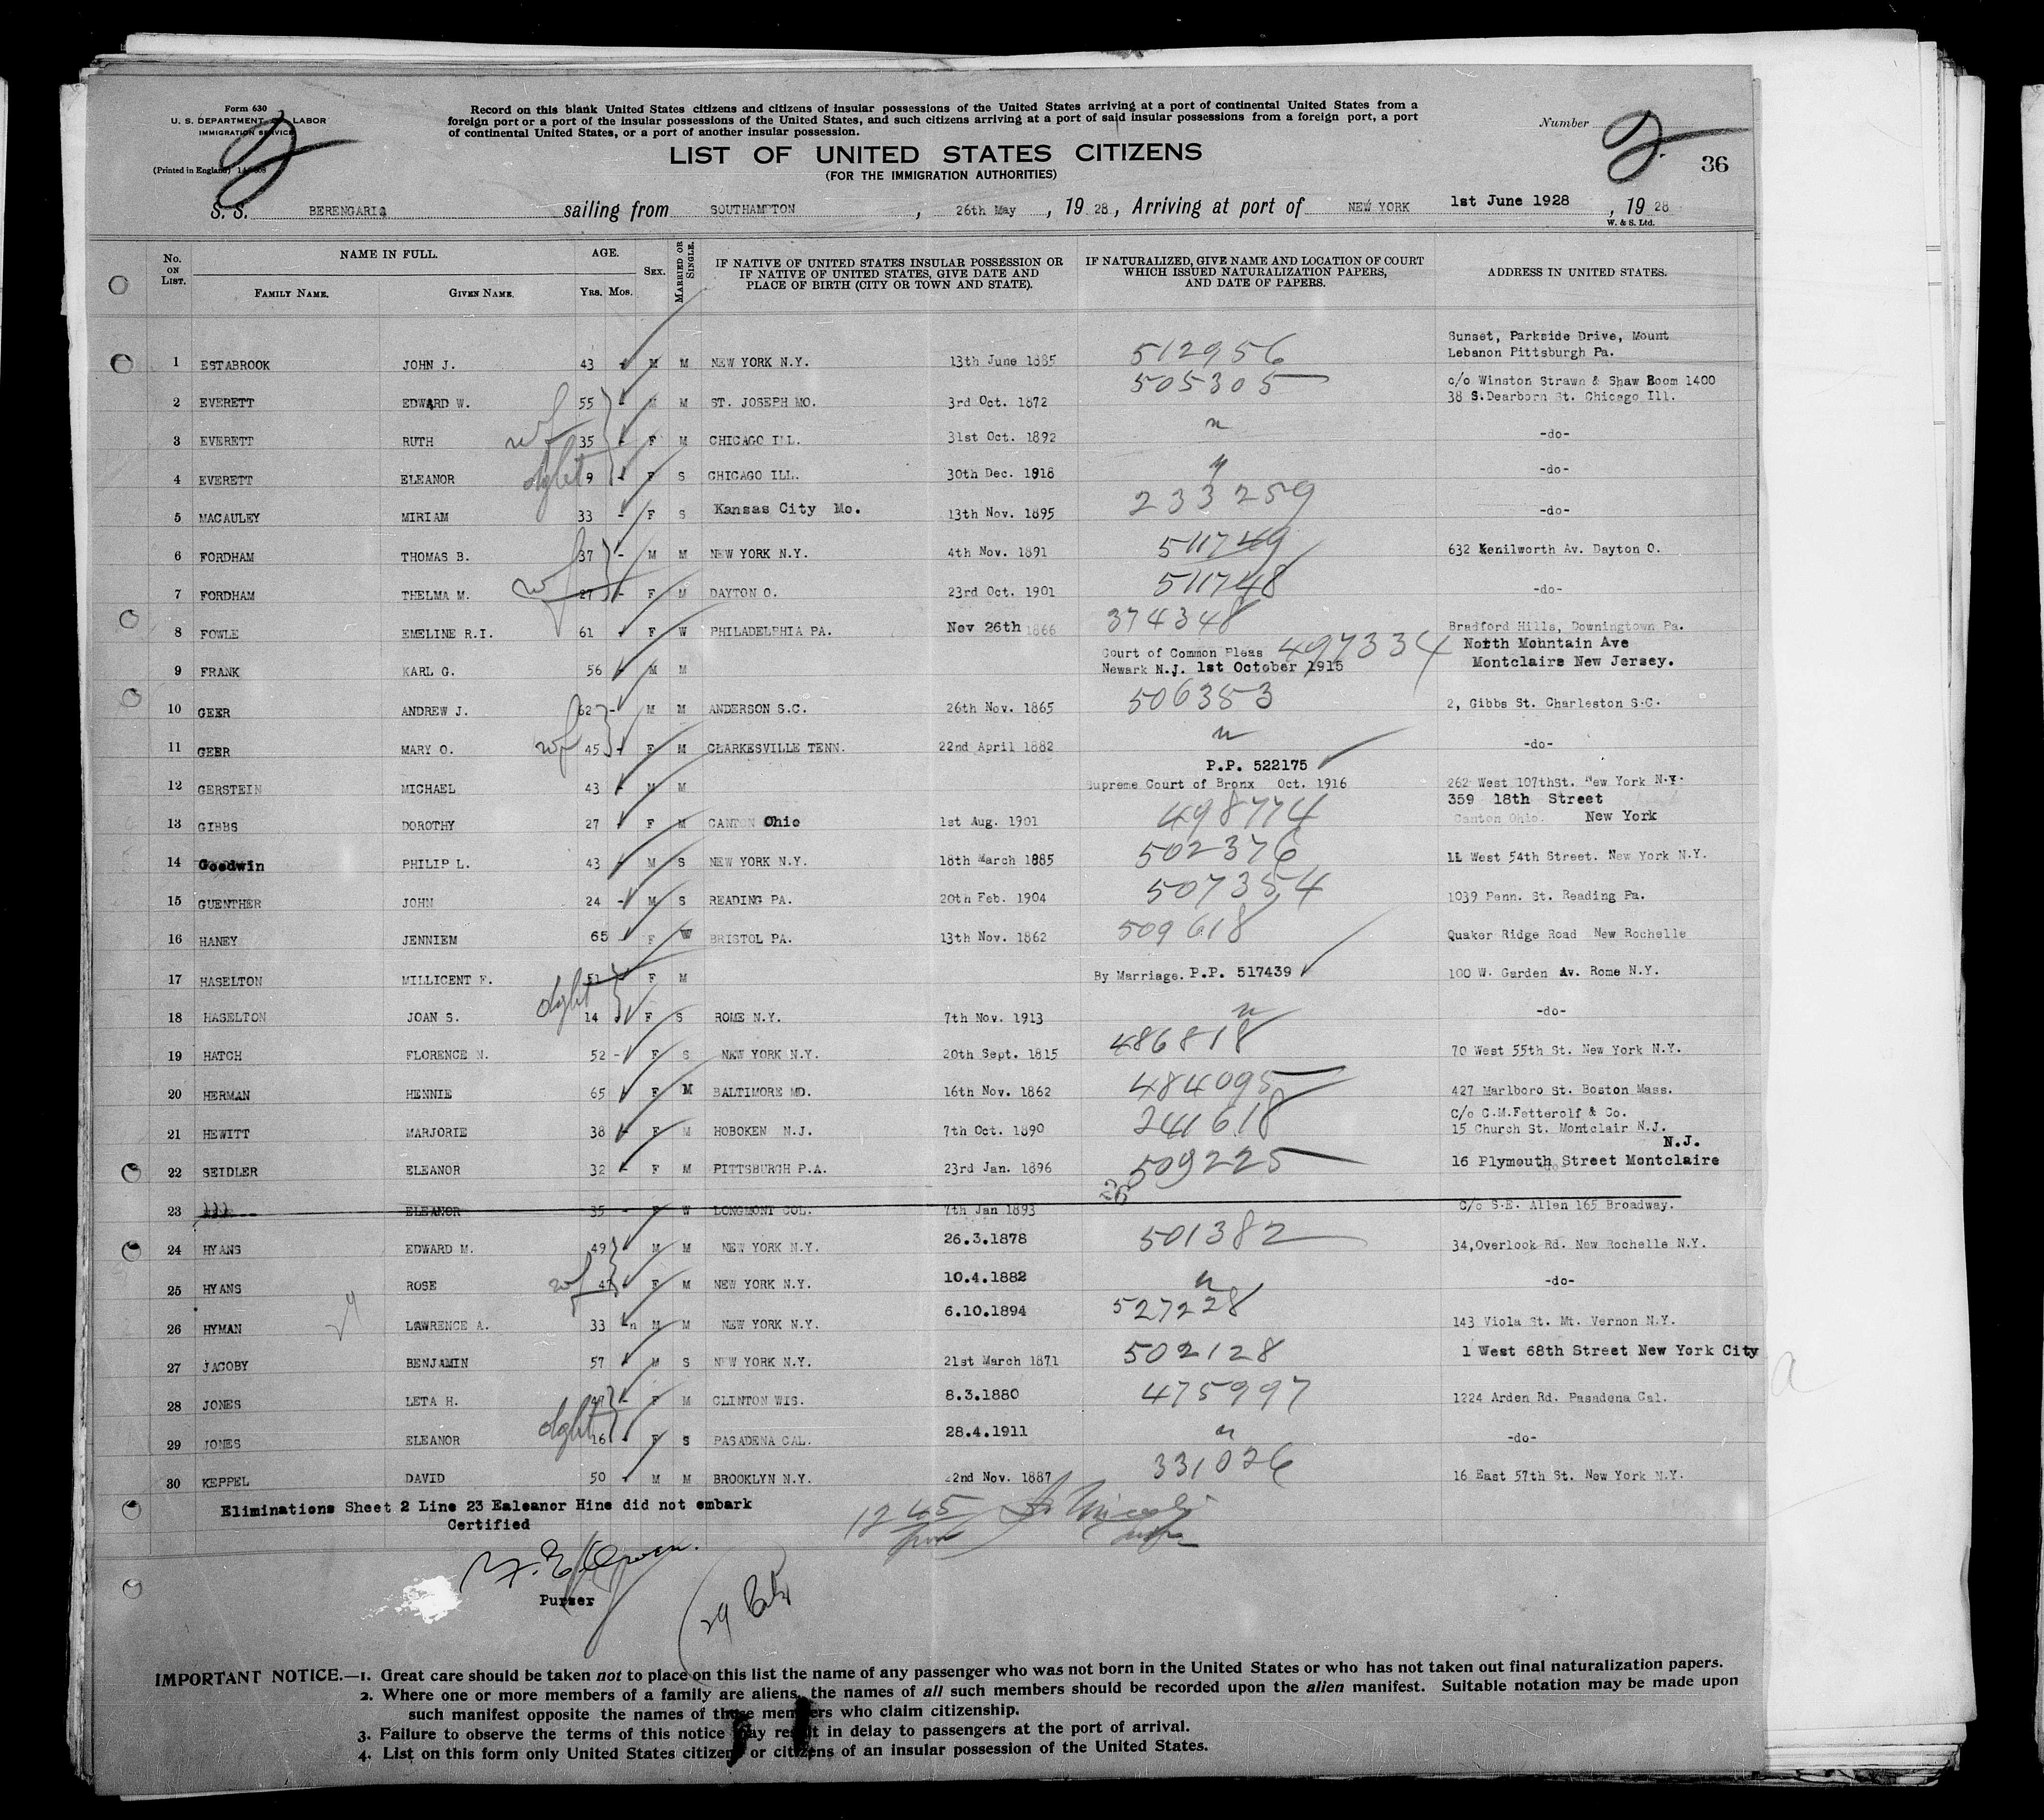 Form 630
U. S. DEPARTMENT OF LABOR
IMMIGRATION SERVICE
(Printed in England)
Record on this blank United States citizens and citizens of insular possessions of the United States arriving at a port of continental United States from a
foreign port or a port of the insular possessions of the United States, and such citizens arriving at a port of said insular possessions from a foreign port, a port
of continental United States, or a port of another insular possession.
Number
2
2
36
LIST OF UNITED STATES CITIZENS
(FOR THE IMMIGRATION AUTHORITIES)
S. S. BERENGARIA sailing from SOUTHAMPTON, 26th May, 19 28, Arriving at port of NEW YORK 1st June 1928, 19 28
W. & S. Ltd.
No. ON LIST. NAME IN FULL. FAMILY NAME. GIVEN NAME. AGE. YRS. MOS. SEX. MARRIED OR SINGLE. IF NATIVE OF UNITED STATES INSULAR POSSESSION OR IF NATIVE OF UNITED STATES, GIVE DATE AND PLACE OF BIRTH (CITY OR TOWN AND STATE). IF NATURALIZED, GIVE NAME AND LOCATION OF COURT WHICH ISSUED NATURALIZATION PAPERS, AND DATE OF PAPERS. ADDRESS IN UNITED STATES.
1 ESTABROOK JOHN J. 43 - M M NEW YORK N.Y. 13th June 1885 512956 Sunset, Parkside Drive, Mount
Lebanon Pittsburgh Pa.
2 EVERETT EDWARD W. 55 - M M ST. JOSEPH MO. 3rd Oct. 1872 505305 c/o Winston Strawn & Shaw Room 1400
38 S.Dearborn St. Chicago Ill.
3 EVERETT RUTH wf 35 - F M CHICAGO ILL. 31st Oct. 1892 " -do-
4 EVERETT ELEANOR dght 9 - F S CHICAGO ILL. 30th Dec. 1918 " -do-
5 MACAULEY MIRIAM 33 - F S Kansas City Mo. 13th Nov. 1895 233259 -do-
6 FORDHAM THOMAS B. 37 - M M NEW YORK N.Y. 4th Nov. 1891 511749 632 Kenilworth Av. Dayton O.
7 FORDHAM THELMA M. wf 27 - F M DAYTON O. 23rd Oct. 1901 511748 -do-
8 FOWLE EMELINE R.I. 61 - F W PHILADELPHIA PA. Nov 26th 1866 374348 Bradford Hills, Downingtown Pa.
9 FRANK KARL G. 56 - M M Court of Common Pleas 497334 North Mohntain Ave
Newark N.J. 1st October 1915 Montclaire New Jersey.
10 GEER ANDREW J. 62 - M M ANDERSON S.C. 26th Nov. 1865 506353 2, Gibbs St. Charleston S.C.
11 GEER MARY O. wf 45 - F M CLARKESVILLE TENN. 22nd April 1882 " -do-
P.P. 522175
12 GERSTEIN MICHAEL 43 - M M Supreme Court of Bronx Oct. 1916 262 West 107thSt. New York N.Y.
359 18th Street
13 GIBBS DOROTHY 27 - F M CANTON Ohio 1st Aug. 1901 498774 Canton Ohio. New York
14 Goodwin PHILIP L. 43 - M S NEW YORK N.Y. 18th March 1885 502376 11 West 54th Street. New York N.Y.
15 GUENTHER JOHN 24 - M S READING PA. 20th Feb. 1904 507354 1039 Penn. St. Reading Pa.
16 HANEY JENNIEM 65 - F W BRISTOL PA. 13th Nov. 1862 509618 Quaker Ridge Road New Rochelle
17 HASELTON MILLICENT F. 51 - F M By Marriage. P.P. 517439 100 W. Garden Av. Rome N.Y.
18 HASELTON JOAN S. dght 14 - F S ROME N.Y. 7th Nov. 1913 " -do-
19 HATCH FLORENCE N. 52 - F S NEW YORK N.Y. 20th Sept. 1815 486818 70 West 55th St. New York N.Y.
20 HERMAN HENNIE 65 - F M BALTIMORE MD. 16th Nov. 1862 484095 427 Marlboro St. Boston Mass.
21 HEWITT MARJORIE 38 - F M HOBOKEN N.J. 7th Oct. 1890 241618 C/o C.M.Fetterolf & Co.
15 Church St. Montclair N.J.
N.J.
22 SEIDLER ELEANOR 32 - F M PITTSBURGH P.A. 23rd Jan. 1896 509225 16 Plymouth Street Montclaire
23 ELEANOR 35 - F W LONGMONT COL. 7th Jan 1893 C/o S.E. Allen 165 Broadway.
24 HYANS EDWARD M. 49 M M NEW YORK N.Y. 26.3.1878 501382 34,Overlook Rd. New Rochelle N.Y.
25 HYANS ROSE wf 47 F M NEW YORK N.Y. 10.4.1882 " -do-
26 HYMAN LAWRENCE A. 33 M M NEW YORK N.Y. 6.10.1894 527228 143 Viola St. Mt. Vernon N.Y.
27 JACOBY BENJAMIN 57 - M S NEW YORK N.Y. 21st March 1871 502128 1 West 68th Street New York City
28 JONES LETA H. 47 - F M CLINTON WIS. 8.3.1880 475997 1224 Arden Rd. Pasadena Cal.
29 JONES ELEANOR dght 16 - F S PASADENA CAL. 28.4.1911 " -do-
30 KEPPEL DAVID 50 - M M BROOKLYN N.Y. 22nd Nov. 1887 331026 16 East 57th St. New York N.Y.
Eliminations Sheet 2 Line 23 Ealeanor Hine did not embark
Certified
1245
Purser
IMPORTANT NOTICE.—1. Great care should be taken not to place on this list the name of any passenger who was not born in the United States or who has not taken out final naturalization papers.
2. Where one or more members of a family are aliens, the names of all such members should be recorded upon the alien manifest. Suitable notation may be made upon
such manifest opposite the names of those members who claim citizenship.
3. Failure to observe the terms of this notice may result in delay to passengers at the port of arrival.
4. List on this form only United States citizens or citizens of an insular possession of the United States.